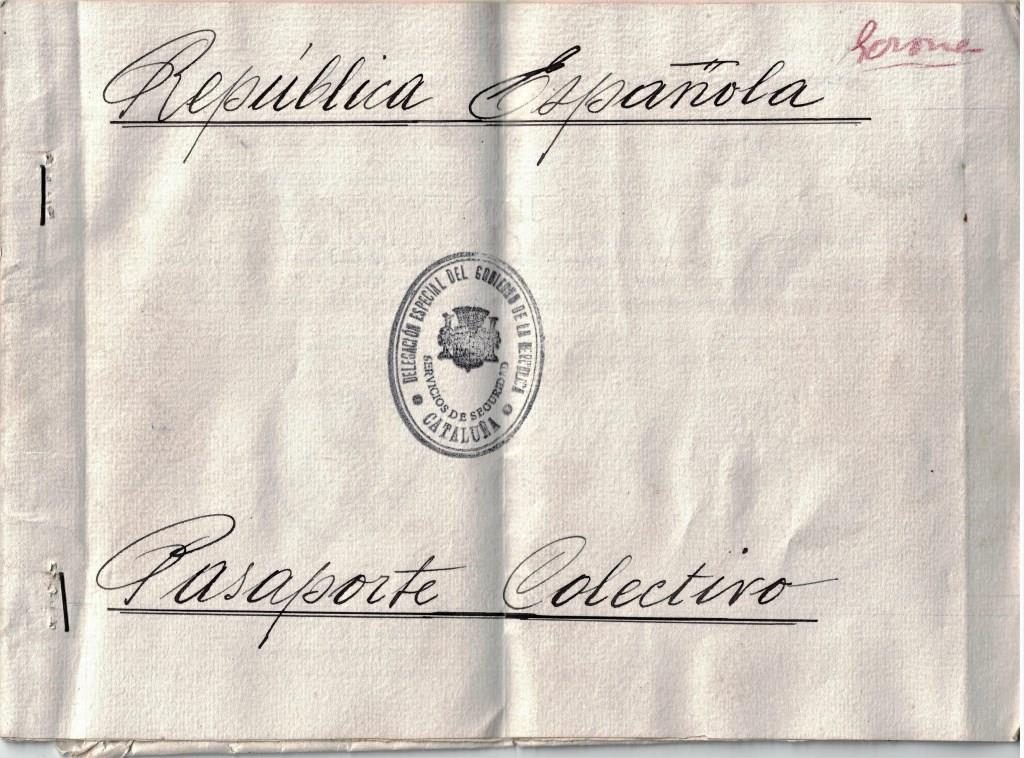 República Española
DELEGACIÓN ESPECIAL DEL GOBIERNO DE LA REPÚBLICA
SERVICIOS DE SEGURIDAD
CATALUÑA
Pasaporte Colectivo